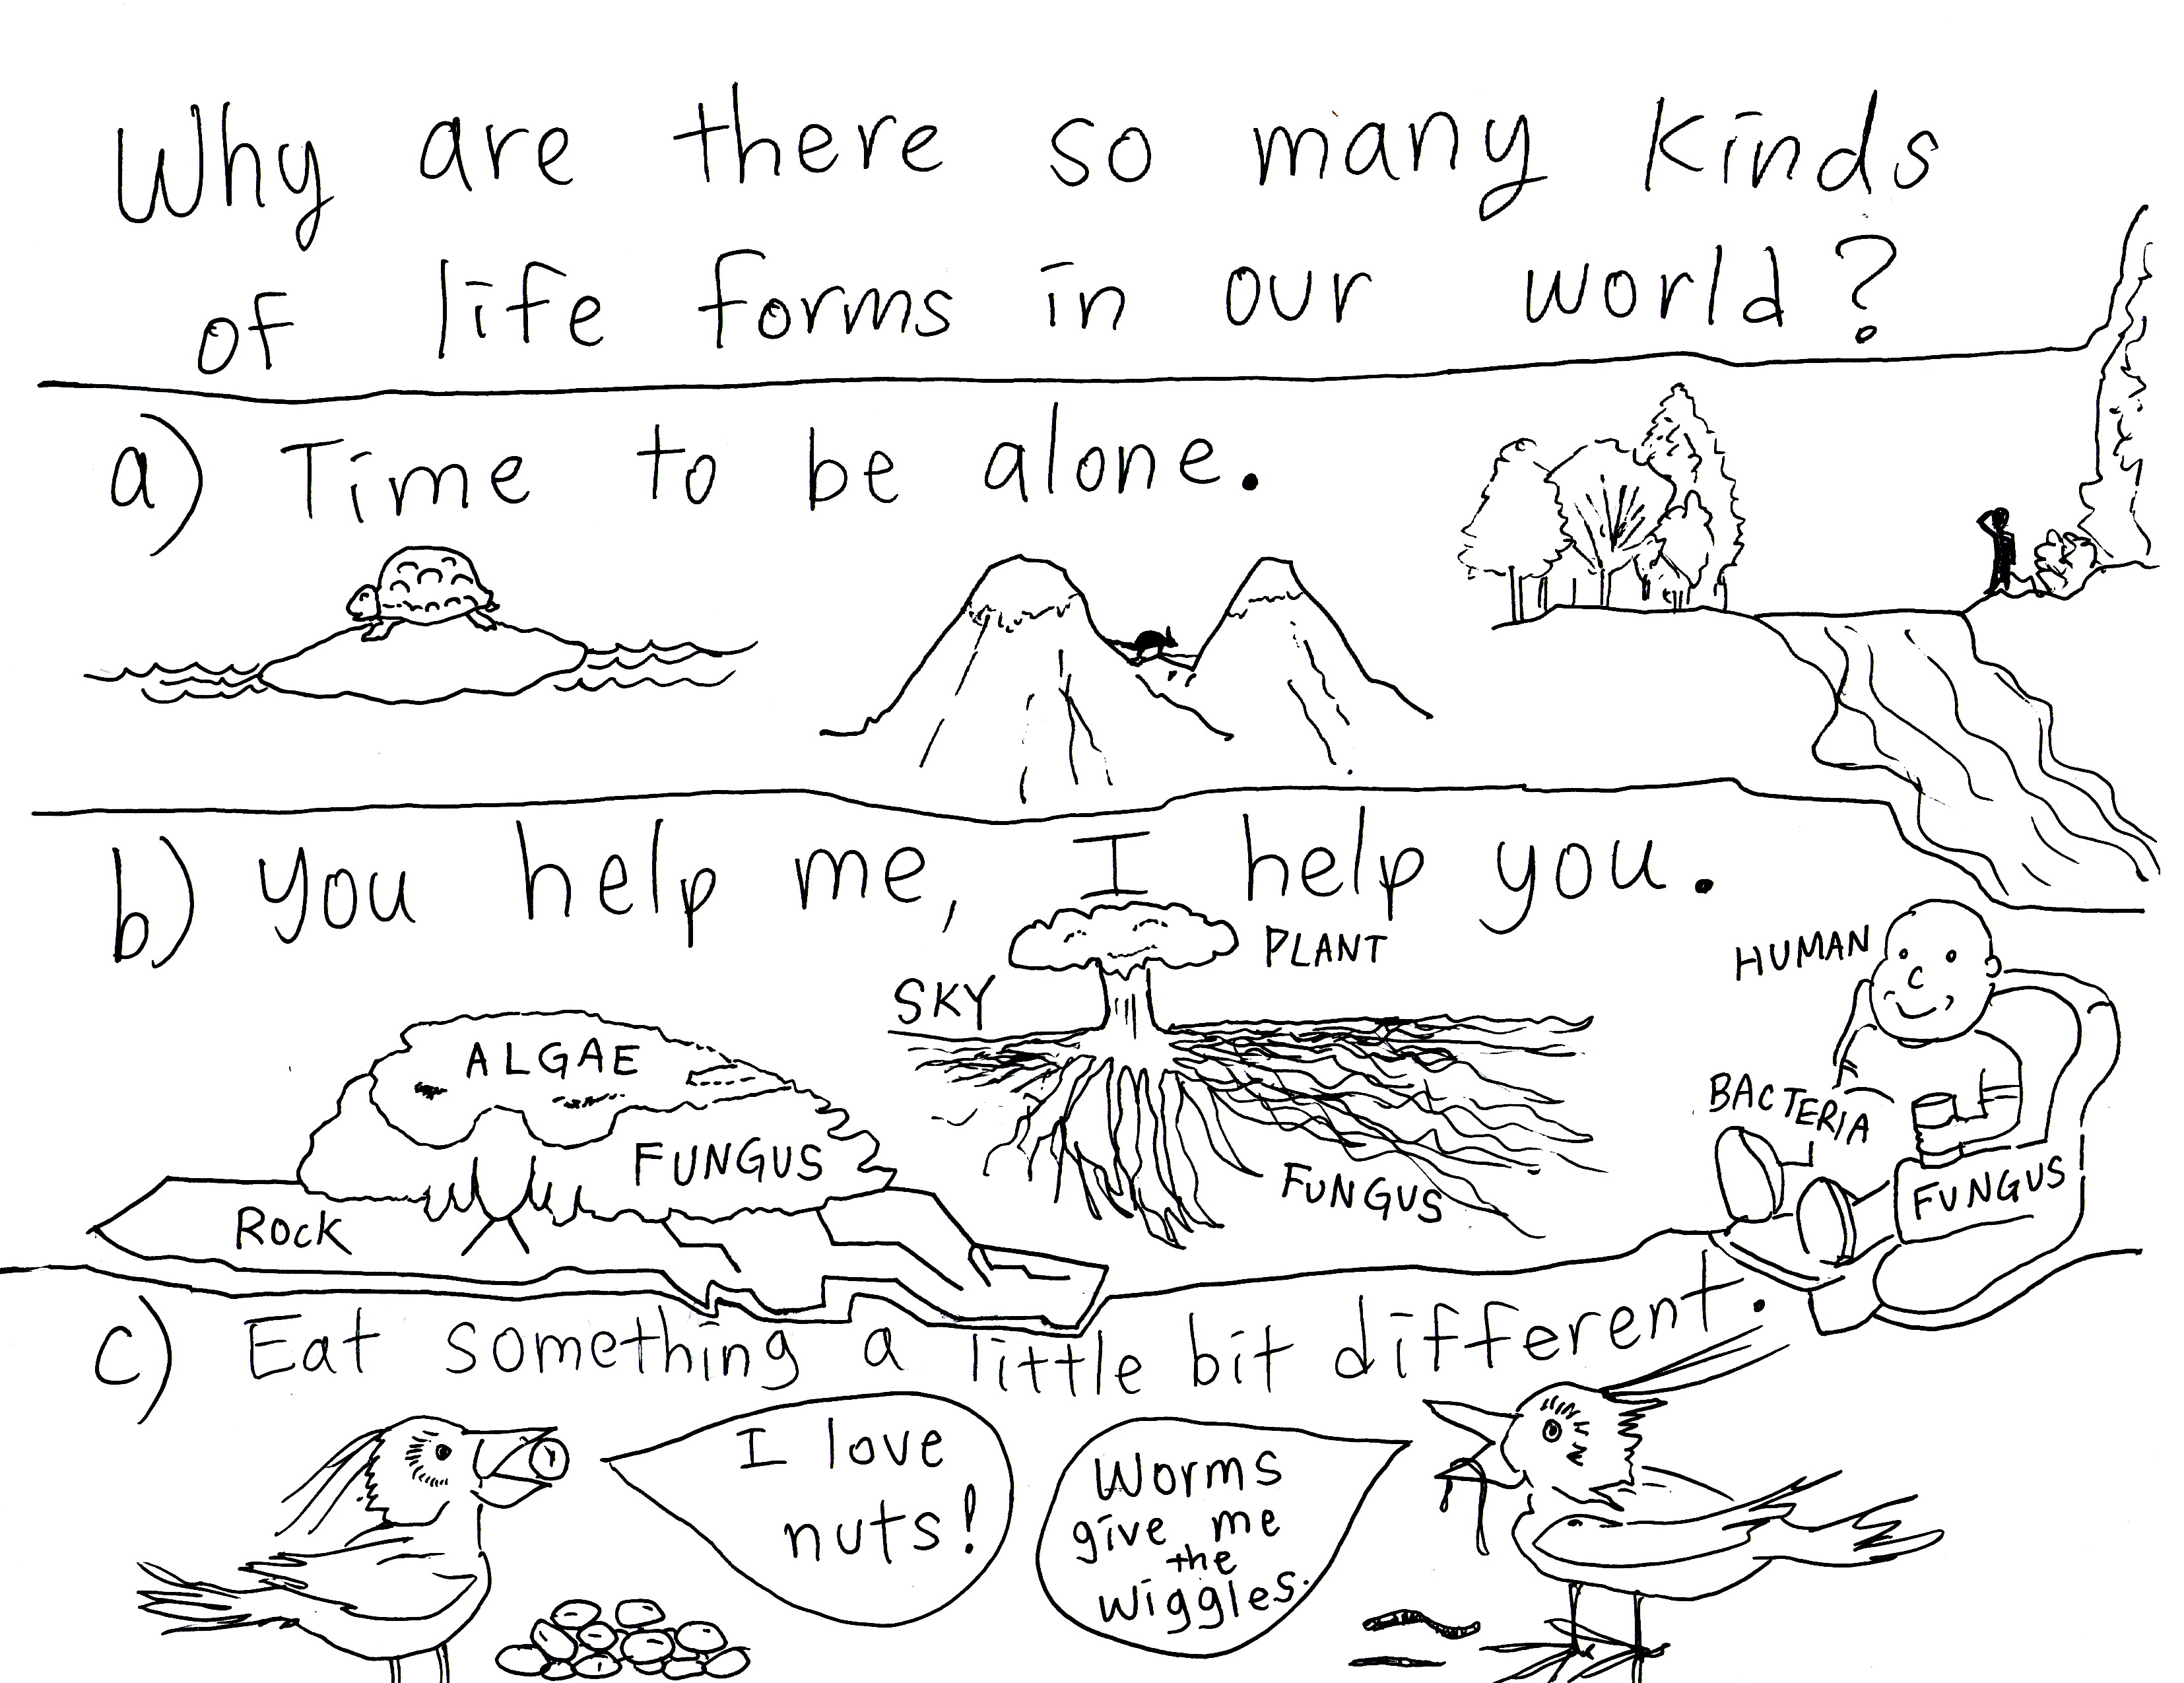 Why are there so many kinds
of life forms in our world?
a) Time to be alone.
b) You help me, I help you.
PLANT
HUMAN
SKY
ALGAE
BACTERIA
FUNGUS
FUNGUS
FUNGUS
ROCK
c) Eat something a little bit different.
I love
nuts!
Worms
give me
the
wiggles.